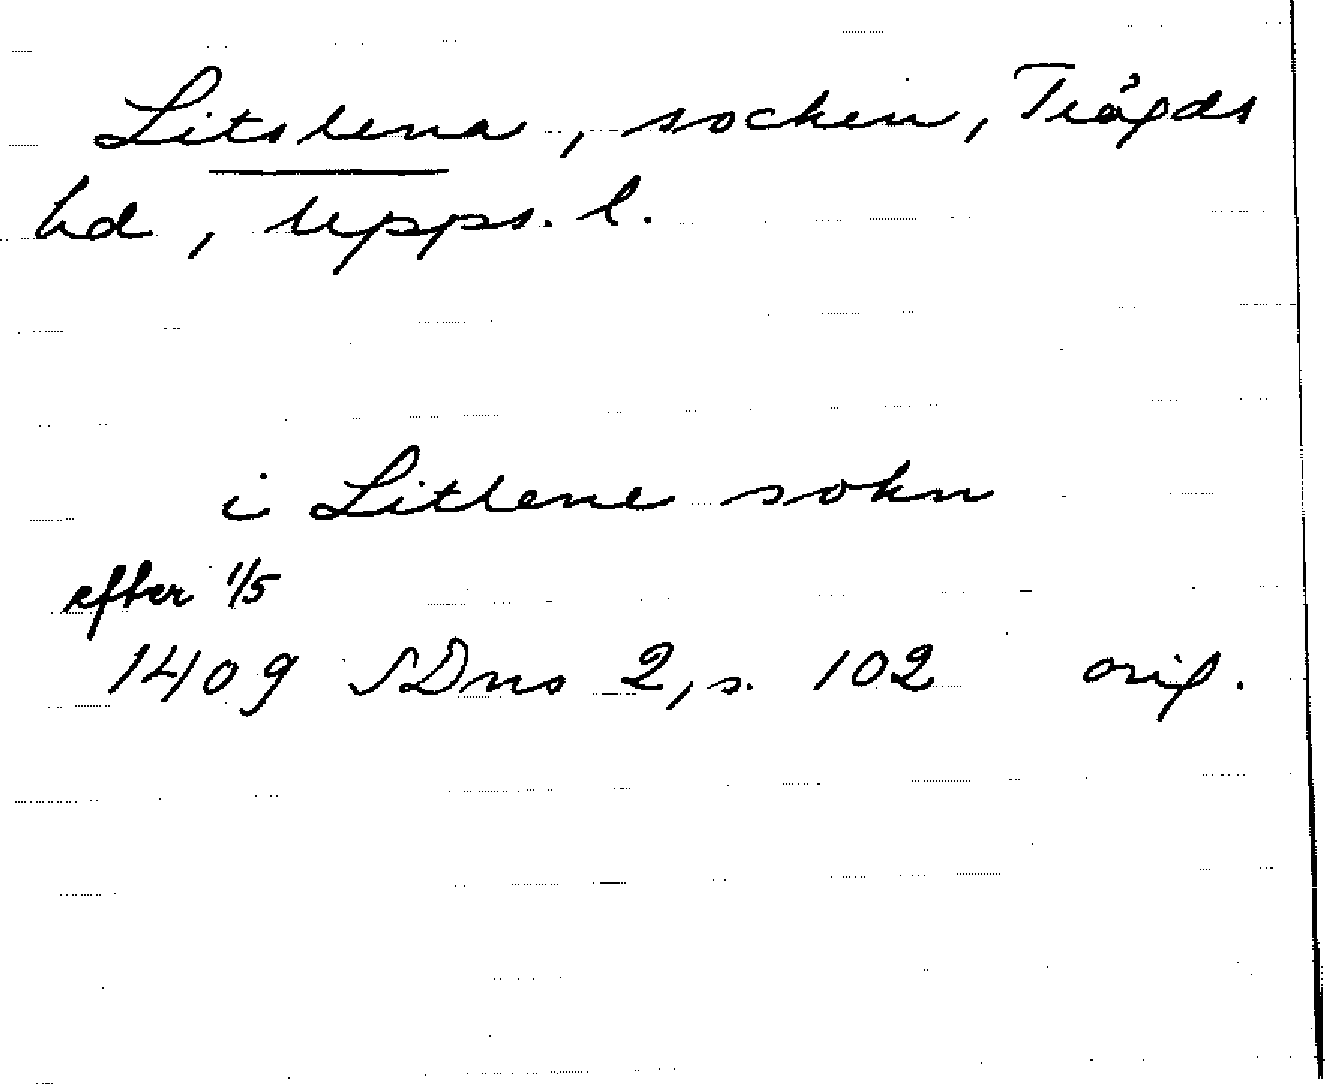 Litslena, socken, Trögds
hd, Upps. l.
i Litlene sokn
efter 1/5
1409 SDns 2, s. 102 orig.